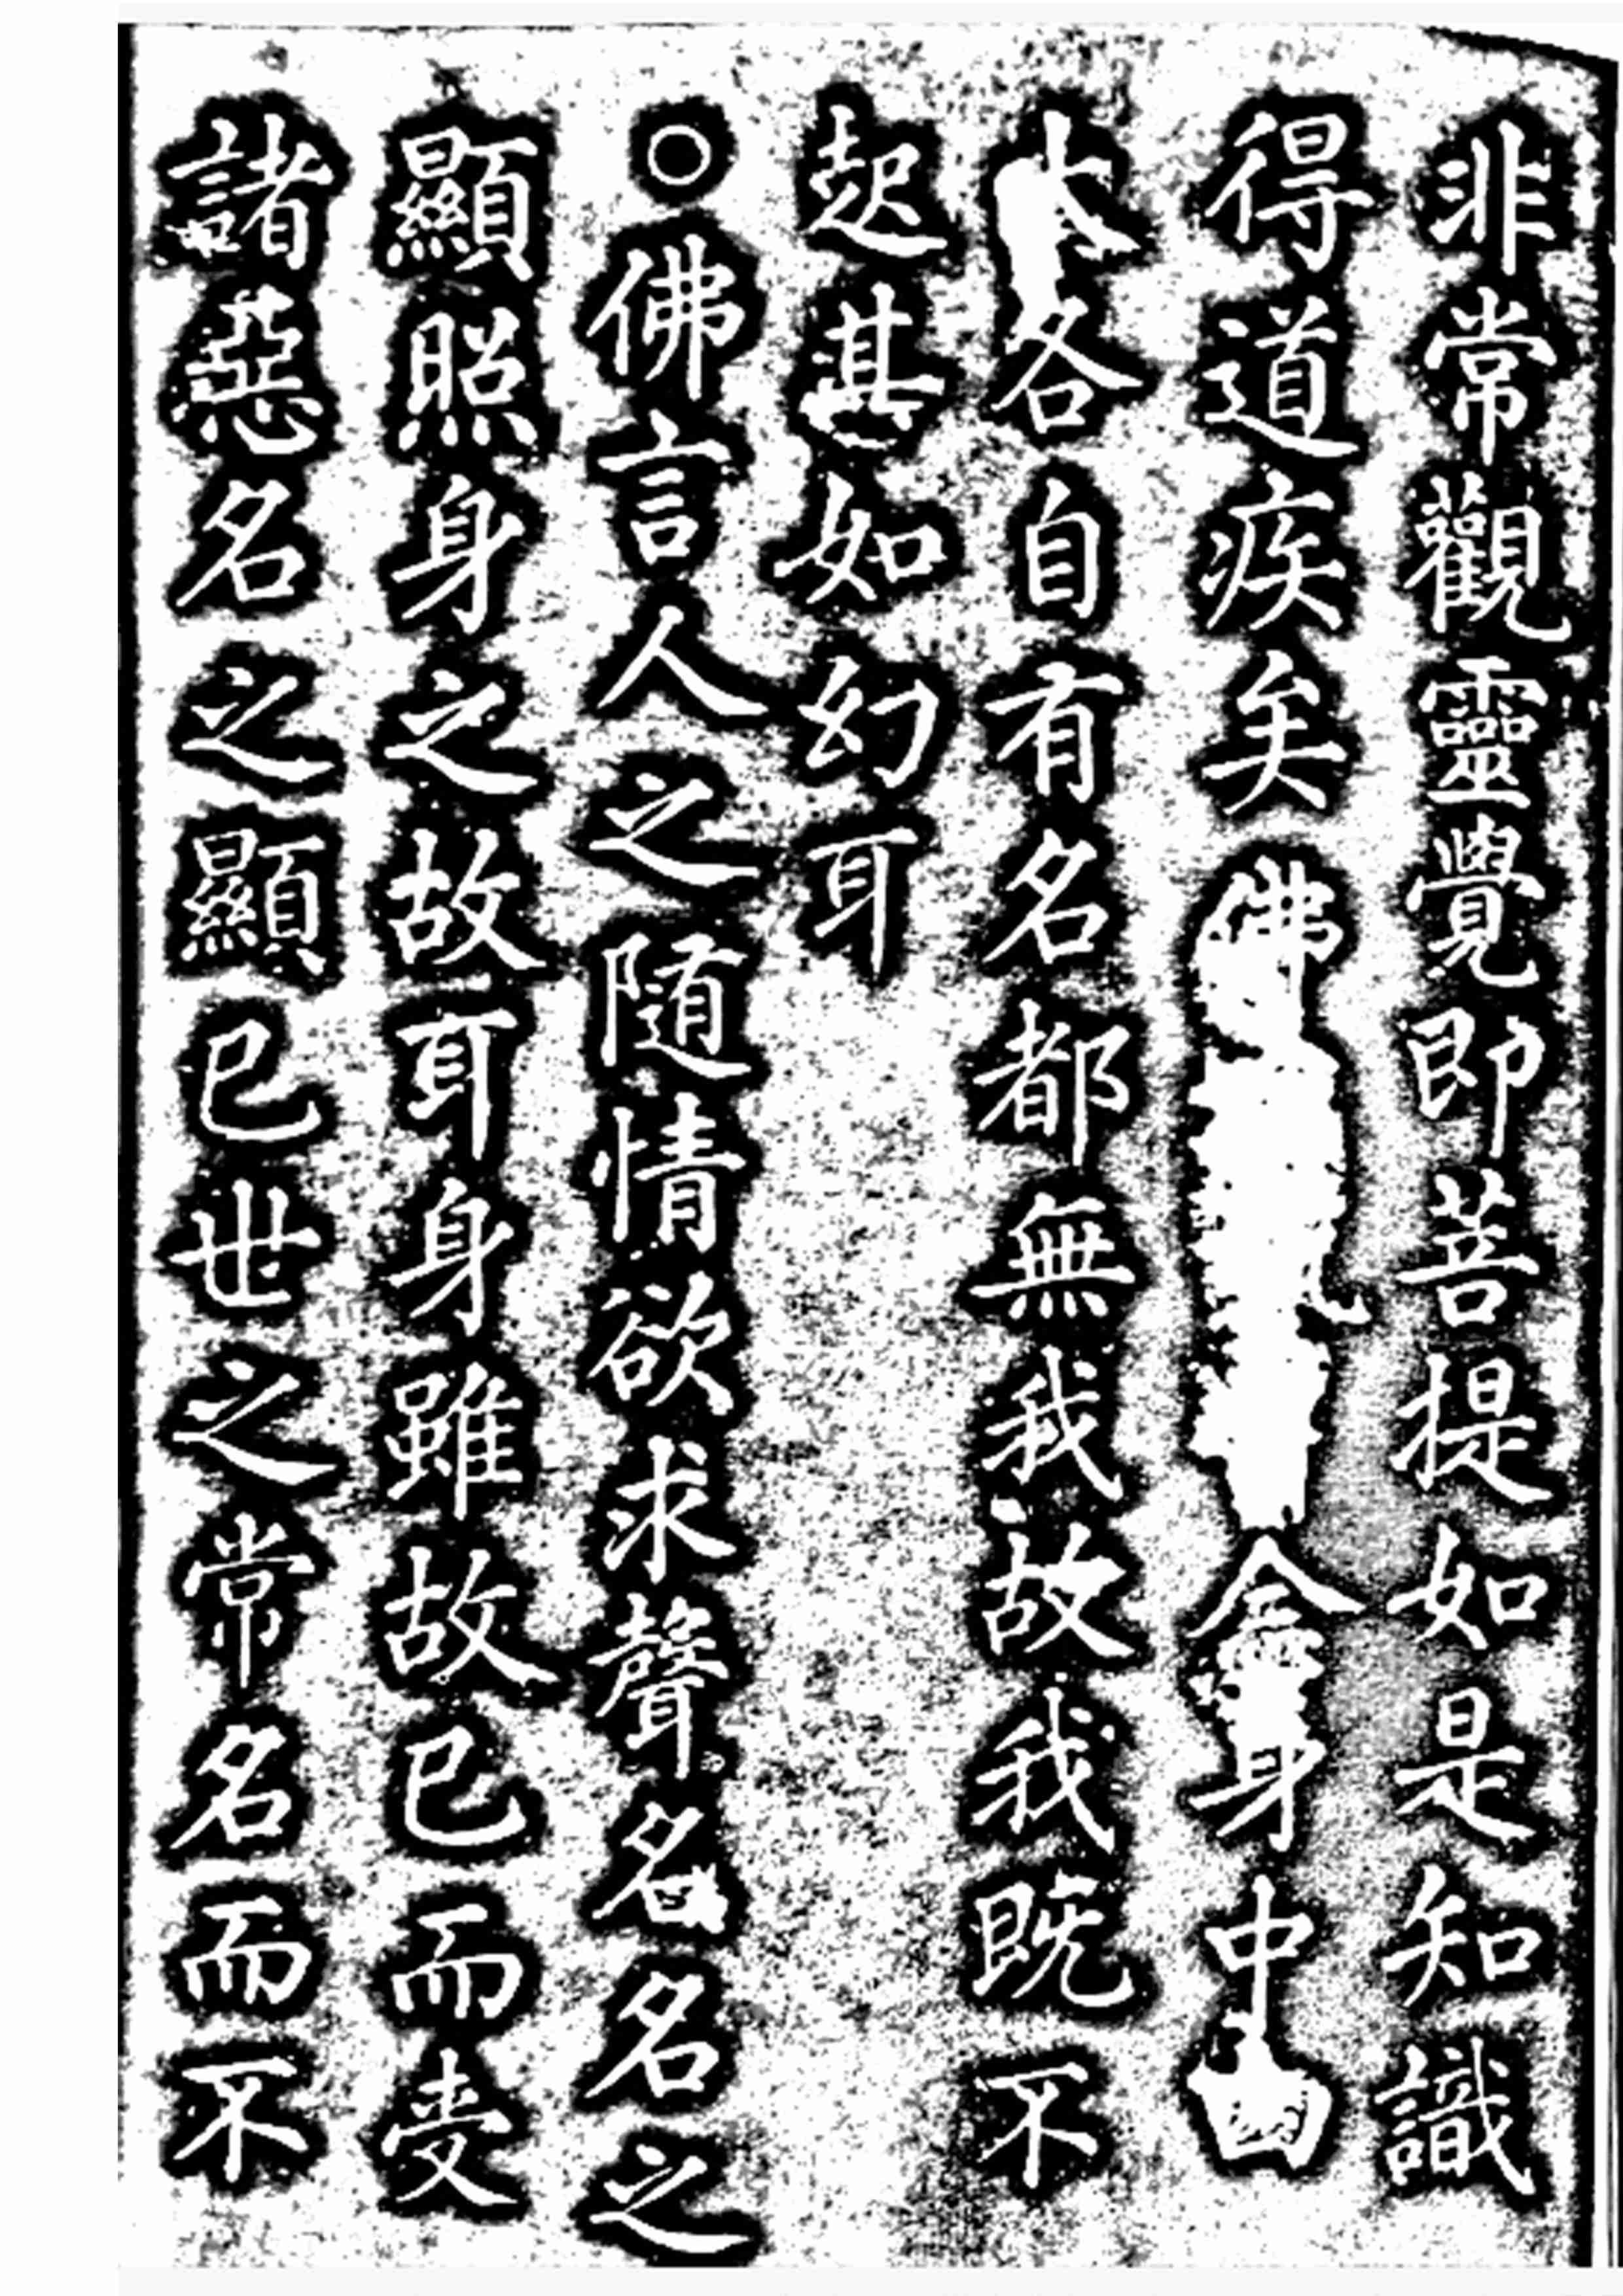 非常觀靈覺即菩提如是知識
得道疾矣佛念身中四
大各自有名都無我故我既不
起其如幻耳
○佛言人之隨情欲求聲名名之
顯照身之故耳身雖故已而受
諸惡名之顯已世之常名而不